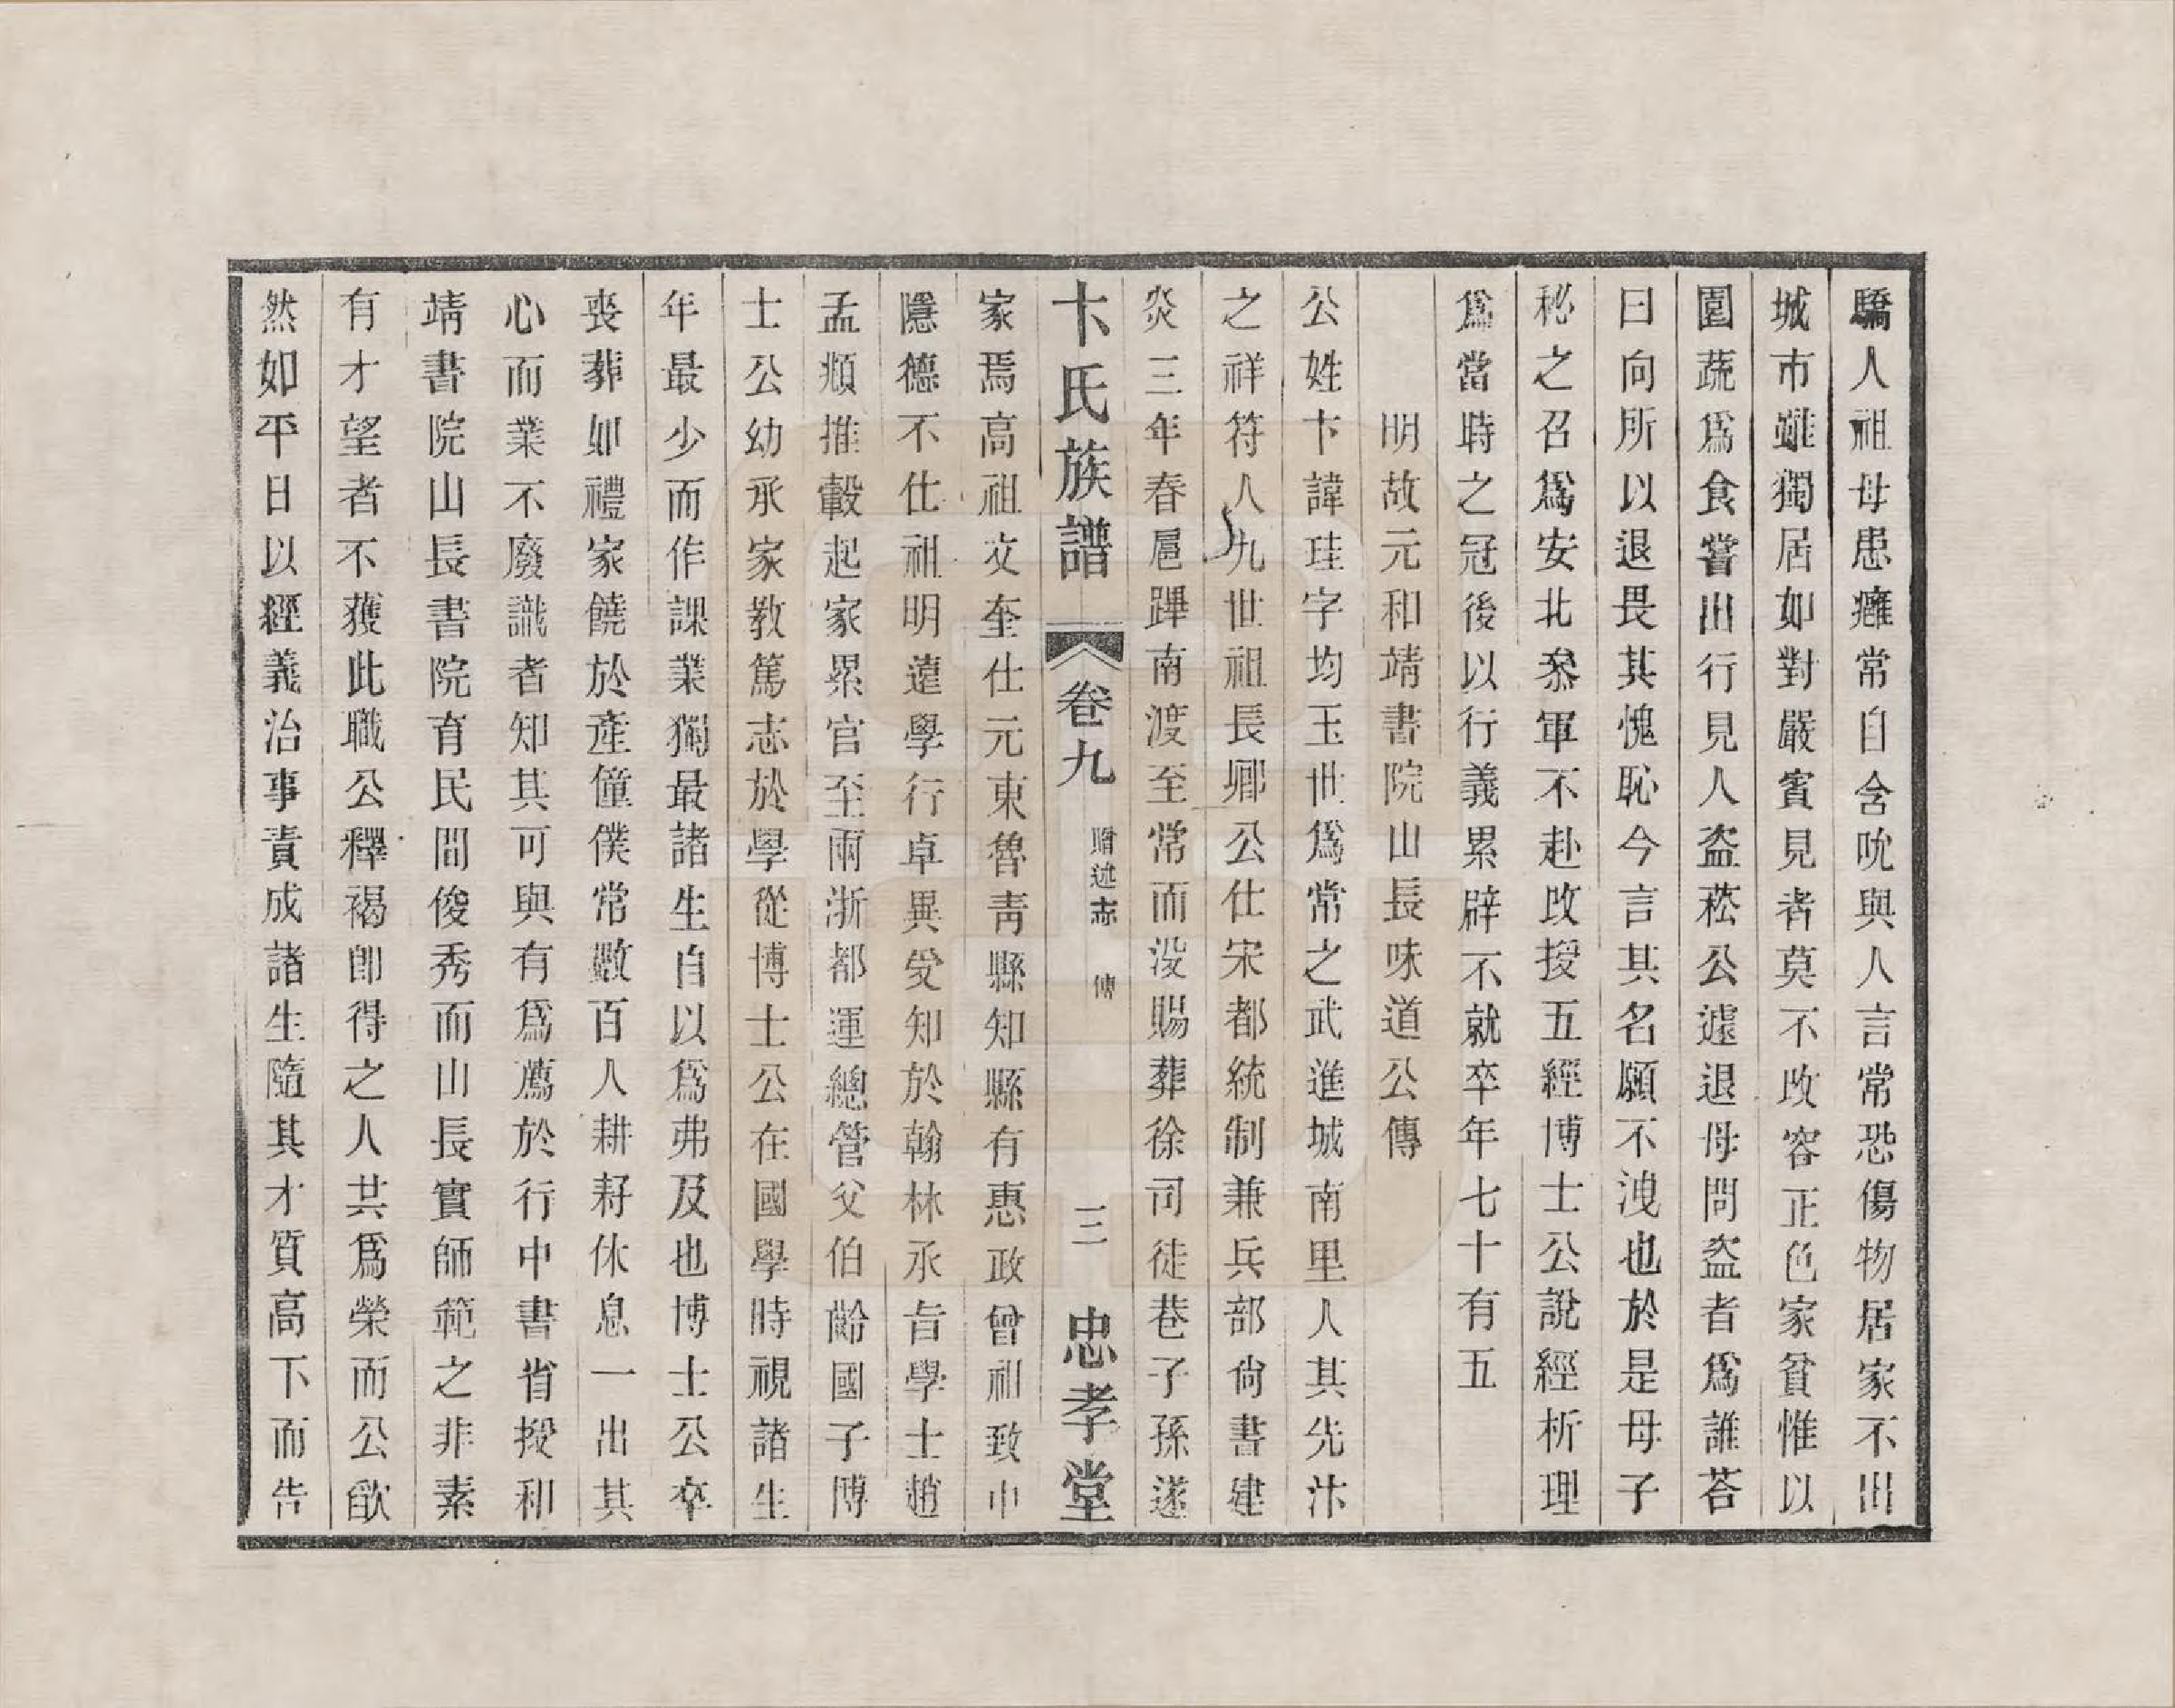 驕人祖母患癰常自含吮與人言常恐傷物居家不出
城市雖獨居如對嚴賓見者莫不改容正色家貧惟以
園蔬爲食嘗出行見人盜菘公遽退母問盜者爲誰荅
曰向所以退畏其愧恥今言其名願不洩也於是母子
秘之召爲安北叅軍不赴改授五經博士公說經析理
爲當時之冠後以行義累辟不就卒年七十有五
明故元和靖書院山長味道公傳
公姓卞諱珪字均玉世爲常之武進城南里人其先汴
之祥符人九世祖長卿公仕宋都統制兼兵部尙書建
炎三年春扈蹕南渡至常而沒賜葬徐司徒巷子孫遂
卞氏族譜 卷九 贈述志 傳 三 忠孝堂
家焉高祖文奎仕元東魯靑縣知縣有惠政曾祖致中
隱德不仕祖明遠學行卓異受知於翰林承旨學士趙
孟頫推轂起家累官至兩浙都運總管父伯齡國子博
士公幼承家教篤志於學從博士公在國學時視諸生
年最少而作課業獨最諸生自以爲弗及也博士公卒
喪葬如禮家饒於產僮僕常數百人耕耔休息一出其
心而業不廢識者知其可與有爲薦於行中書省授和
靖書院山長書院育民間俊秀而山長實師範之非素
有才望者不獲此職公釋褐卽得之人共爲榮而公歆
然如平日以經義治事責成諸生隨其才質高下而告